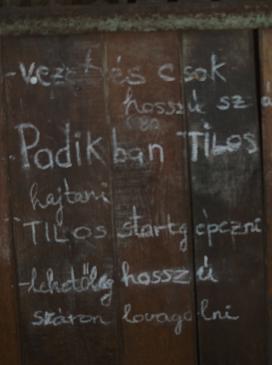 -vezetés csak
hosszú sz
Padikban TILOS
hajtani
TILOS startgépezni
-lehetőleg hosszú
száron lovagolni